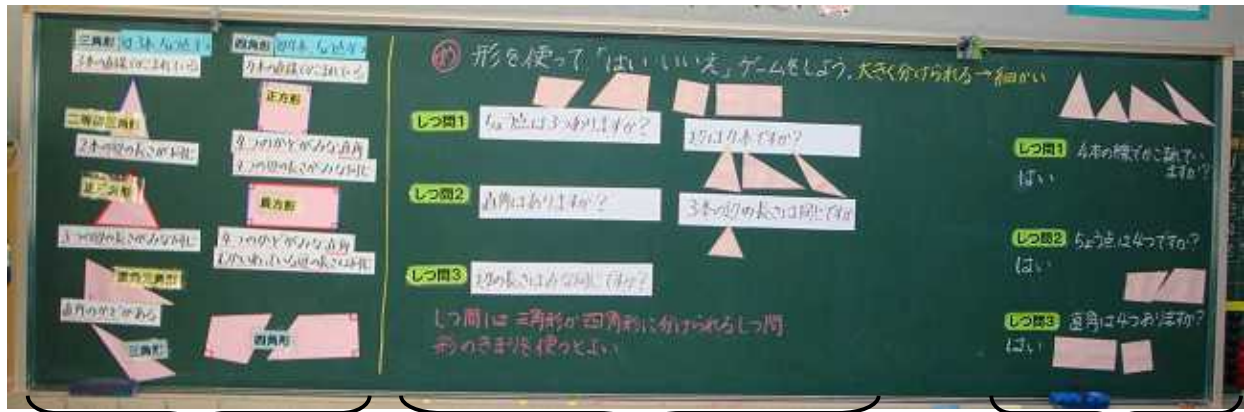 三角形 辺3本 ちょう点3こ
3本の直線でかこまれている
二等辺三角形
2本の辺の長さが同じ
正三角形
3つの辺の長さがみな同じ
直角三角形
直角のかどがある
三角形
四角形 辺4本 ちょう点4こ
4本の直線でかこまれている
正方形
4つのかどがみな直角
4つの辺の長さがみな同じ
長方形
4つのかどがみな直角
四角形
形を使って「はい いいえ」ゲームをしよう。
大きく分けられる→細かい
しつ問1
ちょう点は3つありますか?
辺は4本ですか?
しつ問2
直角はありますか?
3本の辺の長さは同じですか
しつ問3
辺の長さはみな同じですか?
しつ問1は三角形か四角形に分けられるしつ問
形のきまりを使うとよい
しつ問1 4本の線でかこまれてい
ますか?
はい
しつ問2 ちょう点は4つですか?
はい
しつ問3 直角は4つありますか?
はい